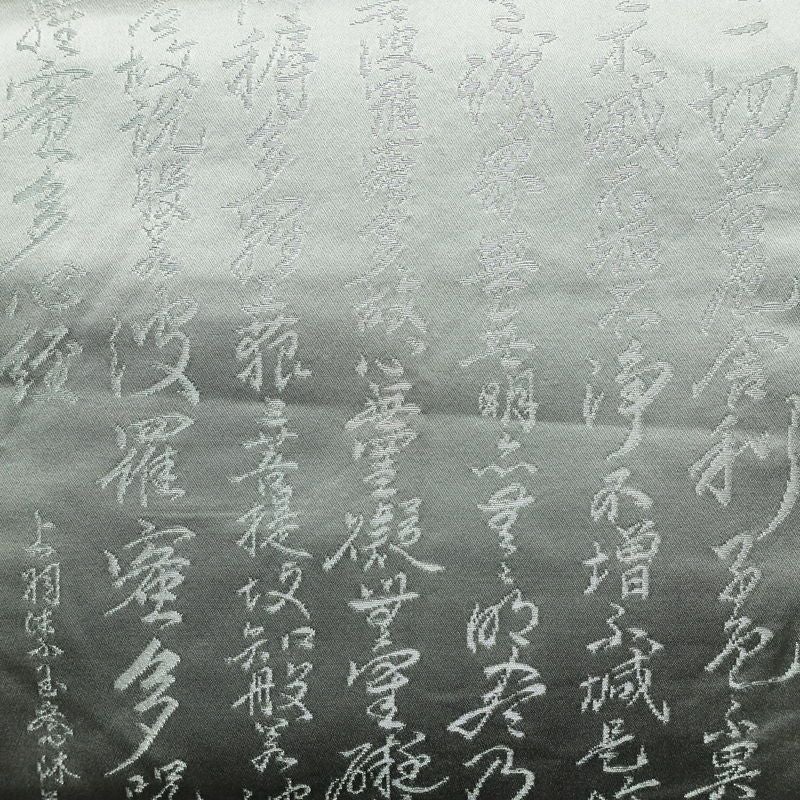 一切苦厄舍利子色不異
不滅不垢不淨不增不減是
識界無無明亦無無明盡乃
波羅蜜多故心無罣礙無罣礙
耨多羅三藐三菩提故知般若波
故說般若波羅蜜多咒
羅蜜多心經
上羽